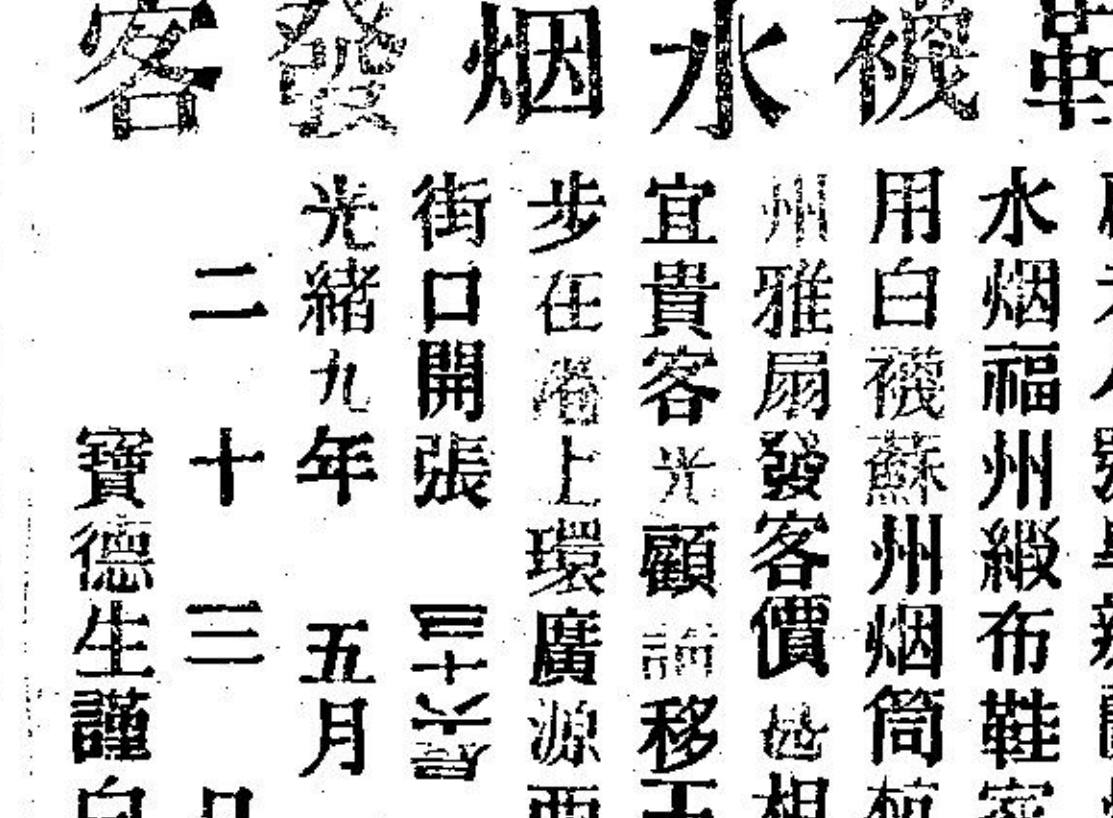 襪水烟發客
水烟福州緞布鞋家
用白襪蘇州烟筒杭
州雅扇發客價相
宜貴客光顧請移玉
步在港上環廣源西
街口開張
光緒九年 五月
二十三日
寶德生謹白